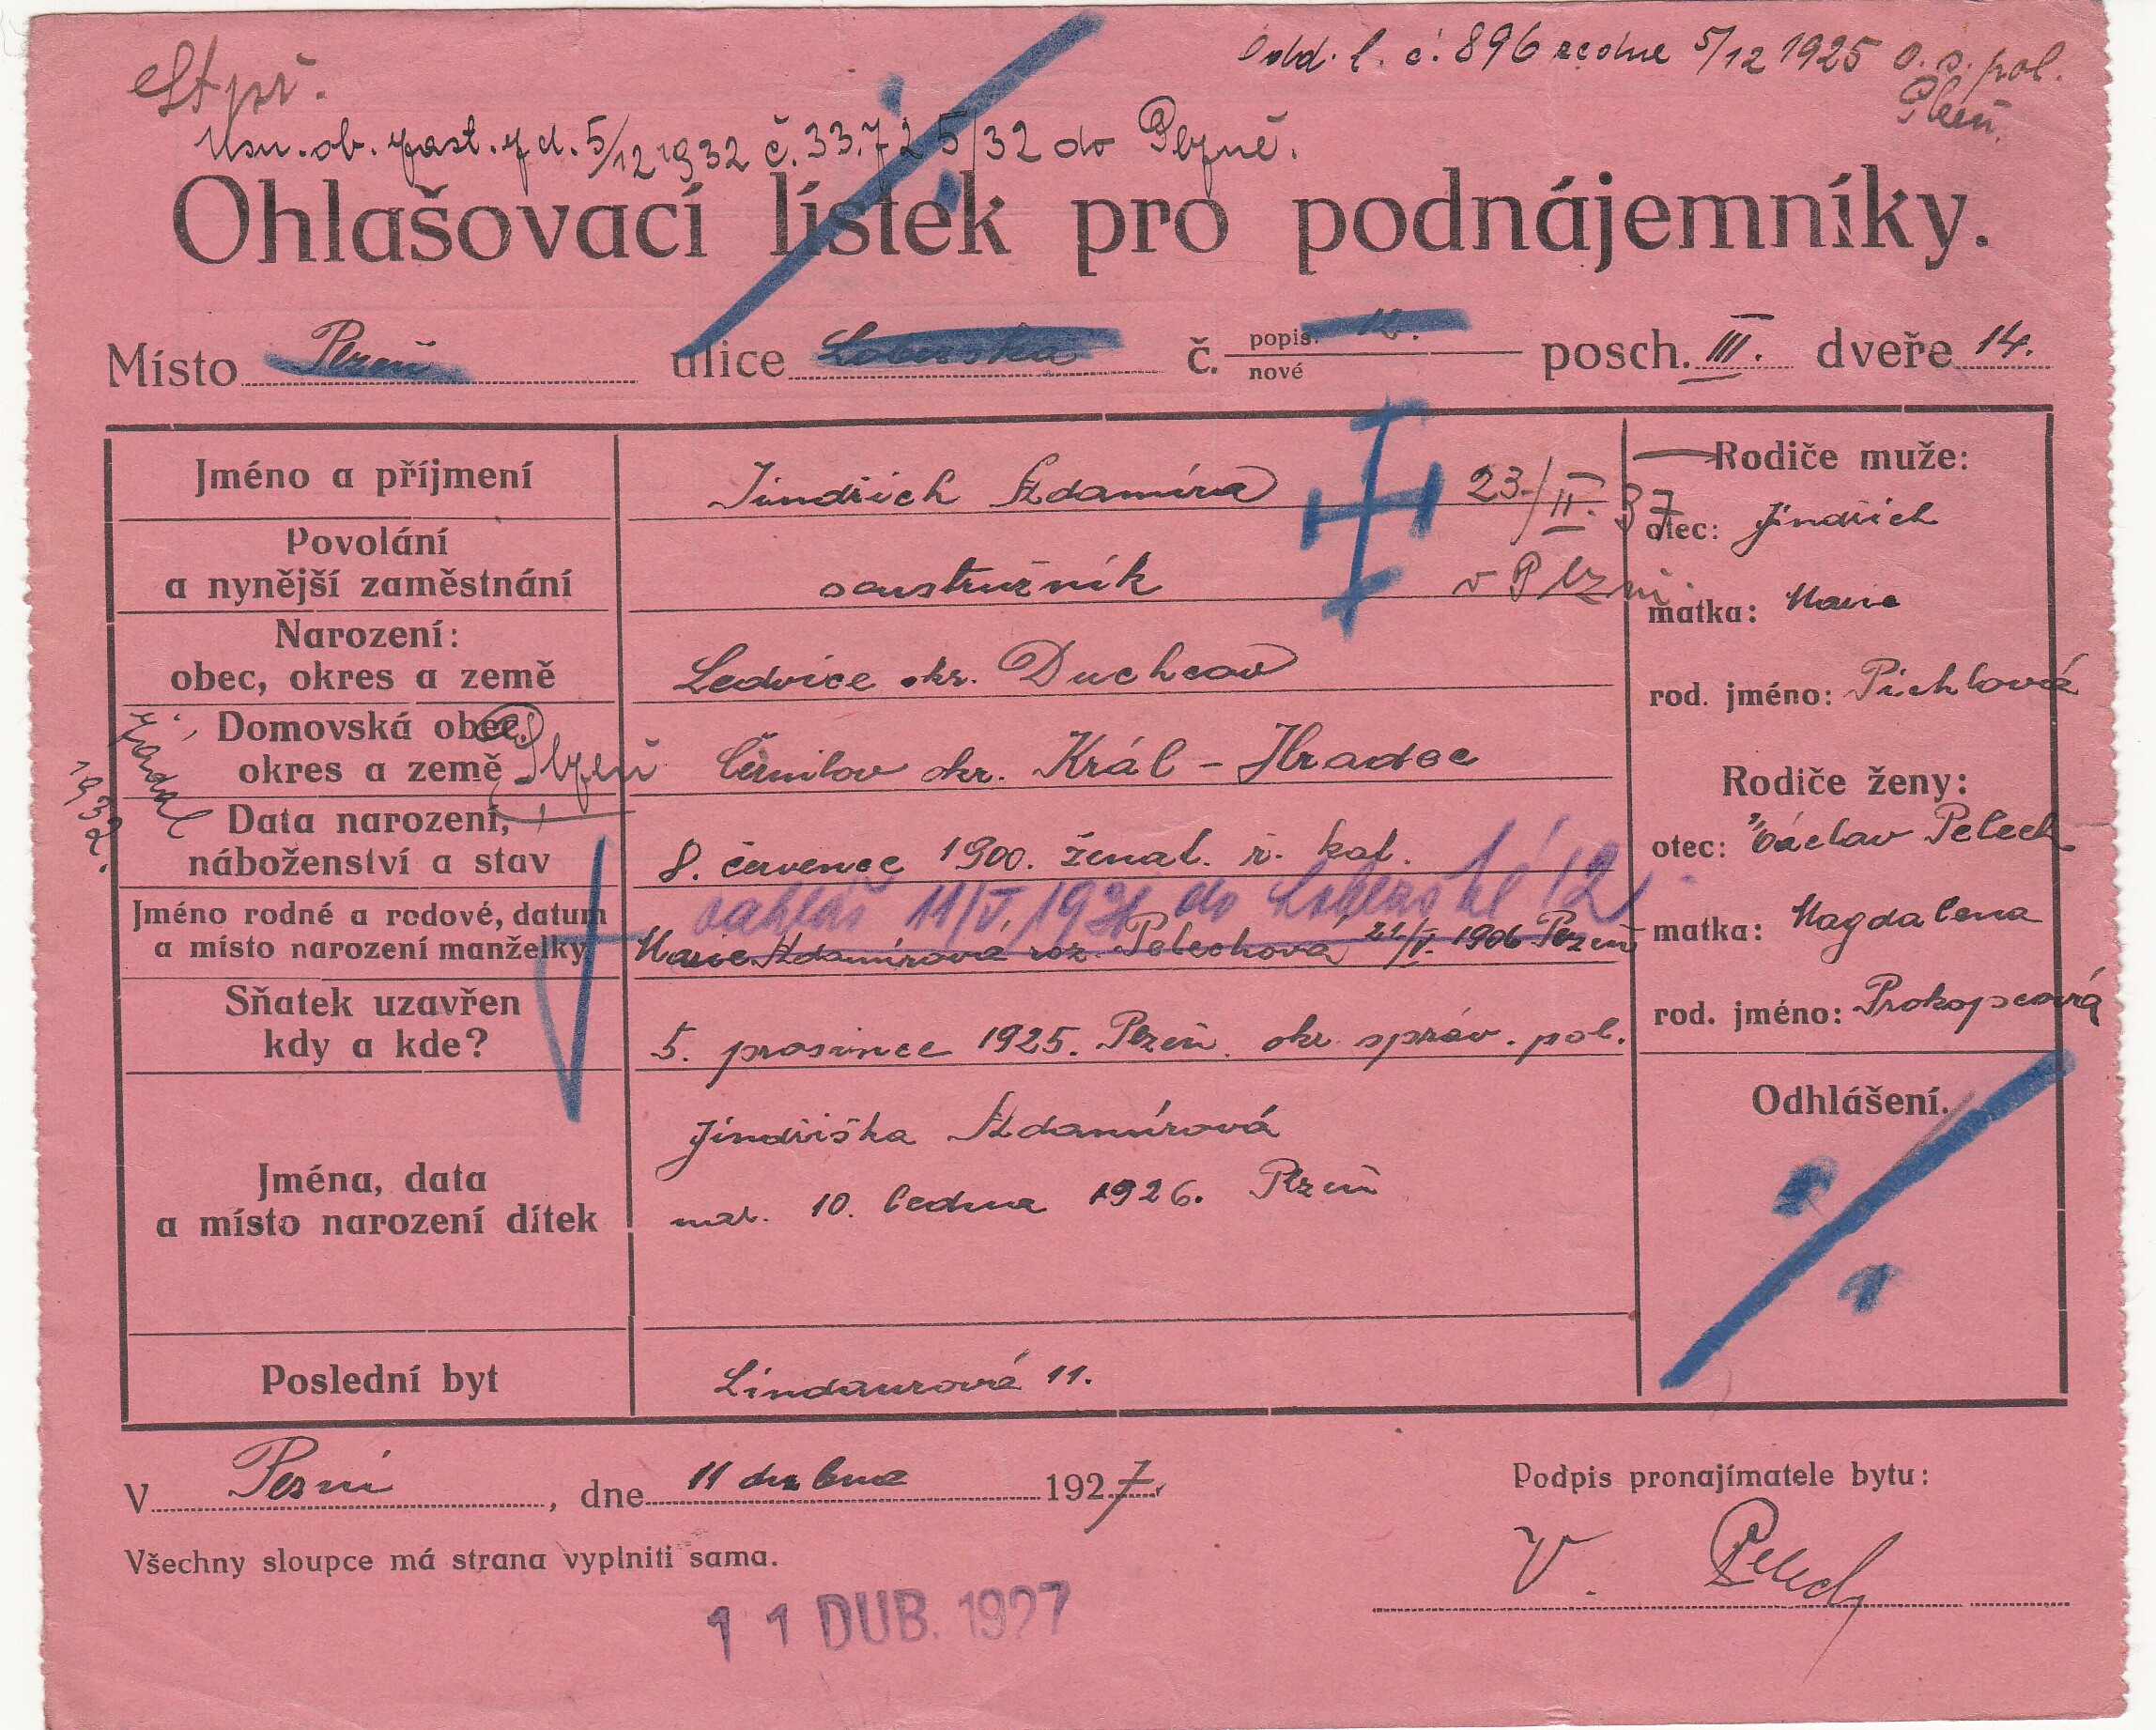 St př.
Odd. l. č. 896 ze dne 5/12 1925 o. s. pol.
Plzeň.
Usn. ob. zast. z d. 5/12 1932 č. 33.725/32 do Plzně.
Ohlašovací lístek pro podnájemníky.
Místo Plzeň ulice Lobezská č. popis. 12. nové posch. III. dveře 14.
Jméno a příjmení Jindřich Adamíra 23./II. 37
v Plzni.
Povolání
a nynější zaměstnání soustružník
Narození:
obec, okres a země Ledvice okr. Duchcov
Domovská obec,
okres a země Plzeň Černilov okr. Král-Hradec
1932.
Data narození,
náboženství a stav 8. července 1900. ženat. ř. kat.
do Lobezské 12
Jméno rodné a rodové, datum
a místo narození manželky Marie Adamírová roz. Pelechova 21/V. 1906 Plzeň
Sňatek uzavřen
kdy a kde? 5. prosince 1925. Plzeň. okr. správ. pol.
Jména, data
a místo narození dítek Jindřiška Adamírová
nar. 10. ledna 1926. Plzeň
Poslední byt Lindaurová 11.
Rodiče muže:
otec: Jindřich
matka: Marie
rod. jméno: Pichlová
Rodiče ženy:
otec: Václav Pelech
matka: Magdalena
rod. jméno: Prokopcová
Odhlášení.
V Plzni, dne 11 dubna 1927.
Podpis pronajímatele bytu:
V. Pelech
Všechny sloupce má strana vyplniti sama.
11 DUB. 1927